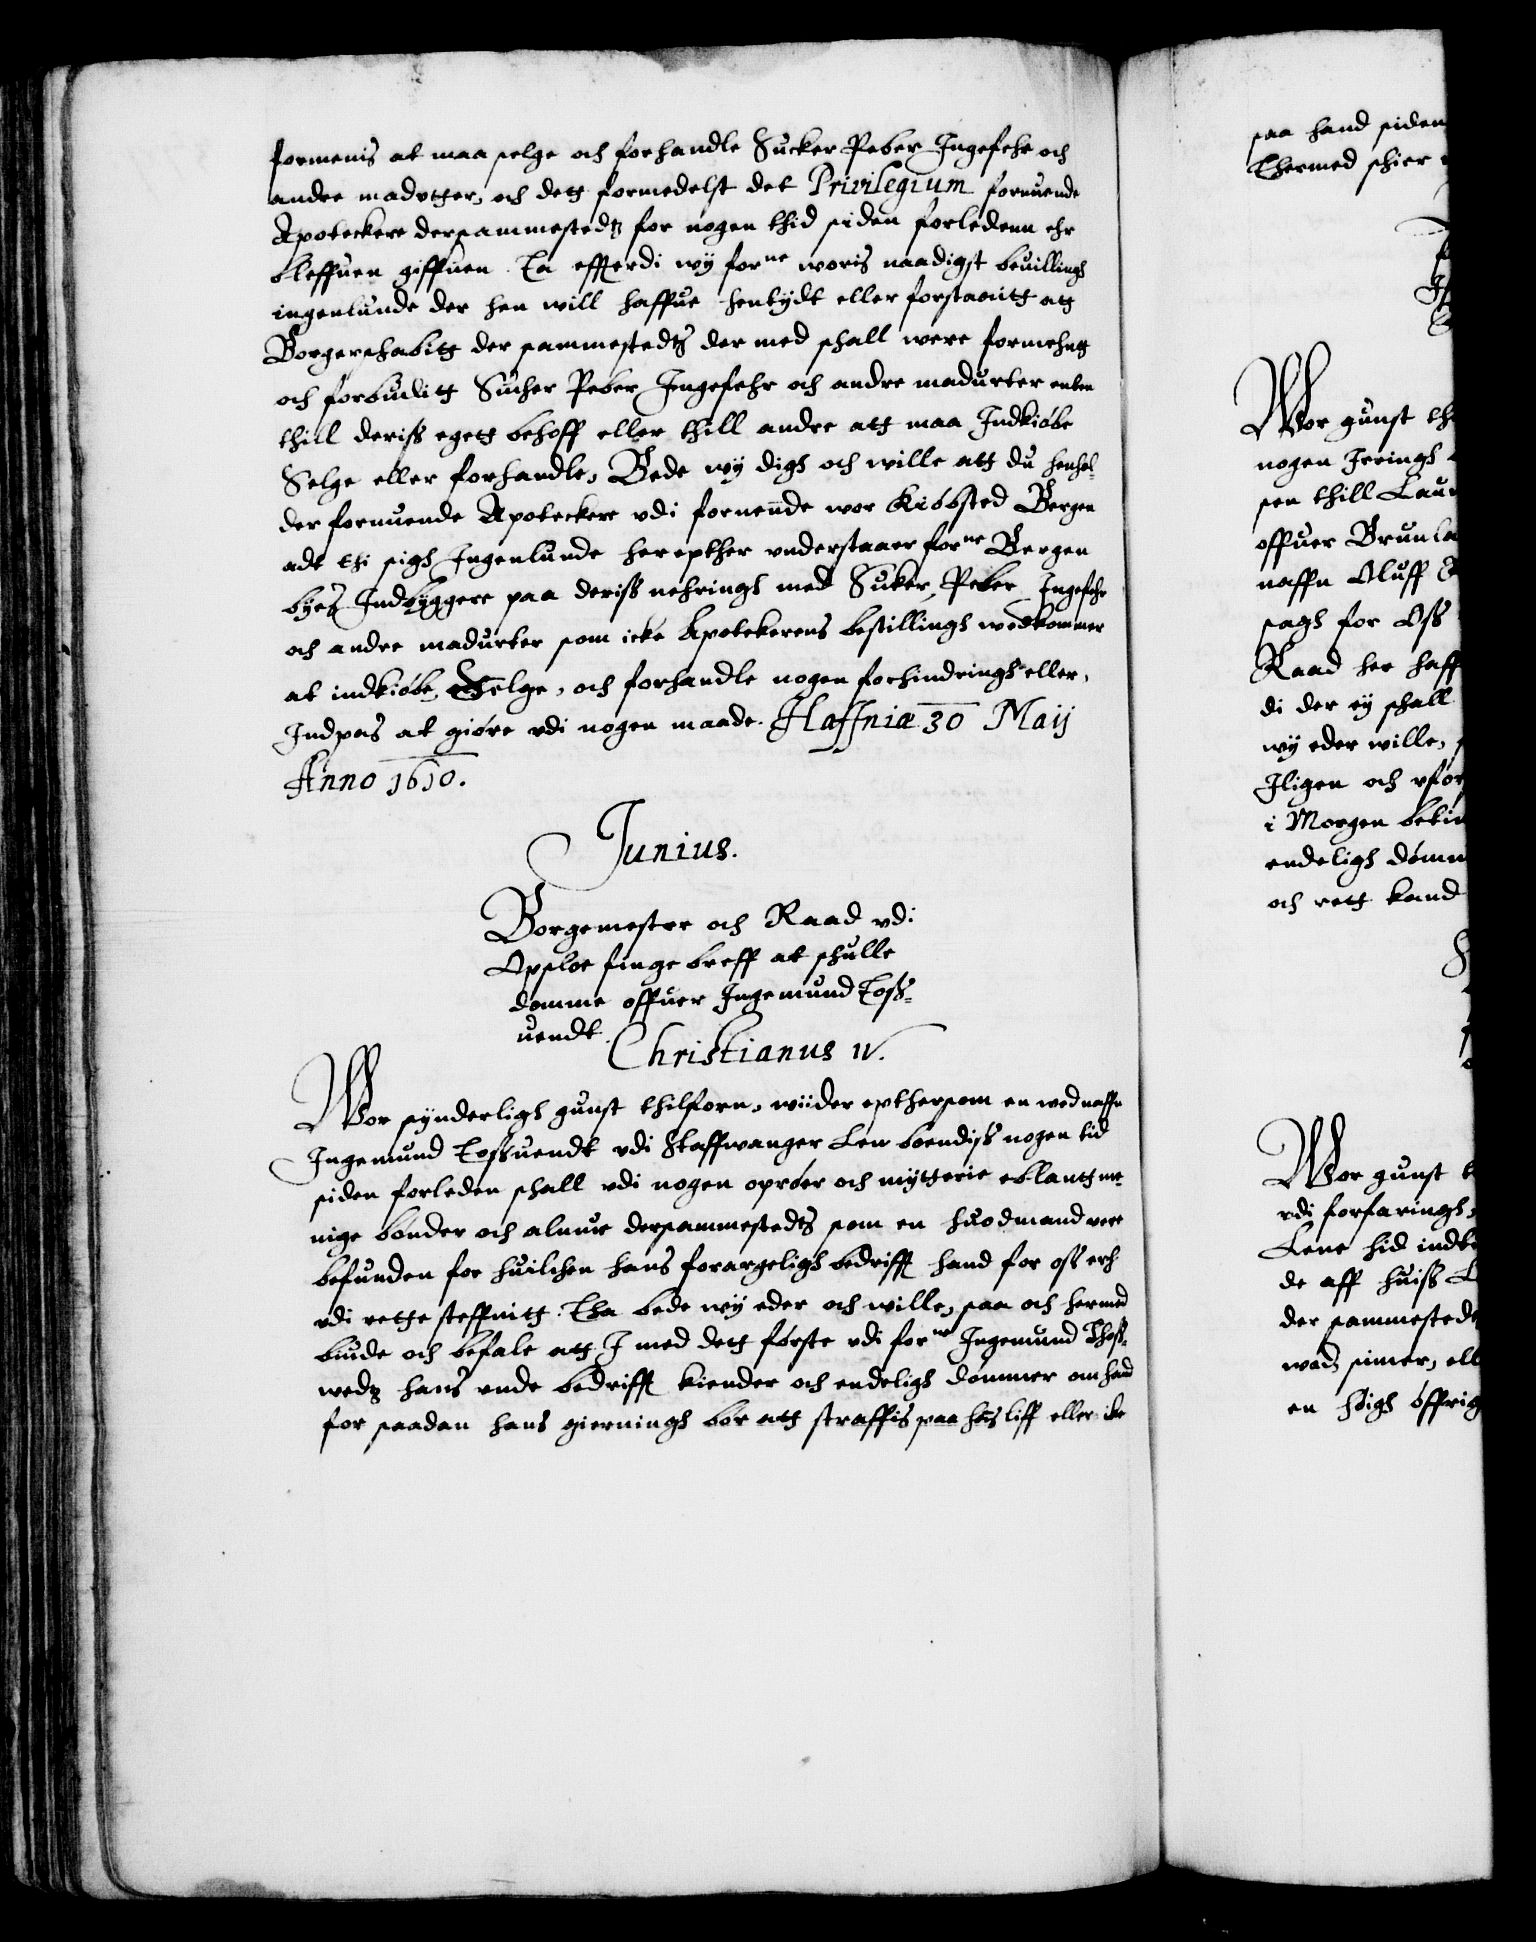 formenis at maa selge och forhandle Sucker Peber Ingefehr och
andre madvrtter, och dett formedelst det Privilegium fornuende
Apoteckere dersammestedtz for nogen thid siden forledenn ehr
bleffuen giffuen. Ta efftterdi wÿ forne. woris naadigst beuillingh
ingenlunde der hen will haffue hentÿdt eller forstaait att
Borgerschabitt der sammestedtz der med schall were formehnt
och forbuditt Sucher Peber Ingefehr och andre madurter enten
thill deriß egett behoff eller thill andre att maa Indkiøbe
Selge eller forhandle, Bede wÿ digh och wille att du henhol=
der fornuende Apoteckere vdi fornende wor Kiøbsted Bergen
adt thi sigh Ingenlunde herepther vnderstaaer forne Bergen
byes Indbÿggere paa deriß nehringh med Suker, Peber Ingefehr
och andre madurter som icke Apotekerens bestillingh wedkommer
at indkiøbe, Selge, och forhandle nogen forhindringh eller,
Indpas at giøre vdi nogen maade. Haffniæ 30 Maij
Anno 1610.
Junius.
Borgemester och Raad vdi
Opsloe finge breff at schulle
domme offuer Ingemund Toß=
uendt.
Christianus IV.
Wor sÿnderligh gunst thilforn, wiider epthersom en wed naffn
Ingemund Toßuendt vdi Staffwanger Len boendiß nogen tid
siden forleden schall vdi nogen oprøer och mÿtterie eblantt me=
nige bønder och almue dersammestedts som en huodmand vere
befunden for huilchen hans forargeligh bedrifft hand for oß erh
vdi rette steffnitt. Tha bede wÿ eder och wille, saa och hermed
biude och befale att I med dett første vdi forne Ingemund Thoß=
wedtz hans onde bedrifft kiender och endeligh dømmer om hand
for saadan hans gierningh bør att straffis paa hans liff eller ike
saa hand siden
Thermed scheer
Wor gunst th
nogen Irringh
sen thill Laur
offuer Brunla
naffn Oluff
sagh for Oß
Raad her haff
di der eÿ schall
wÿ eder wille,
Iligen och vfor
i Morgen betim
endeligh dømm
och rett kand
Wor gunst t
vdi forfaringh,
Lene hid indb
de aff huiß
der sammestede
wed, simer, ell
en høigh øffrig